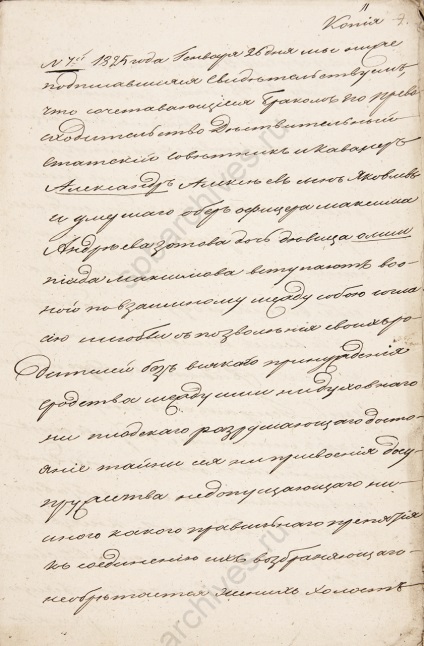 Копия 7.
N 7й 1825 года Генваря 26 дня мы ниже
подписавшияся свидетельствуемъ,
что сочетавающіеся бракомъ его прево
сходительство Действительный
статский советникъ и кавалеръ
Александръ Алексеевъ сынъ Яковлевъ
и умершаго оберъ офицера Максима
Андреева Зотова дочь девица олим
піада Максимова вступаютъ во
оной по взаимному между собою согла
сію и любви съ позволенія своихъ ро
дителей безъ всякаго принужденія
сродства между ими ни духовнаго
ни плодскаго разрушающаго досто
яніе тайны сея ни присвоенія до су
пружества недопущающаго ни
инаго какого правильнаго препятія
къ соединенію ихъ возбраняющаго
необретается женихъ холостъ
spbarchives.ru
spbarchives.ru